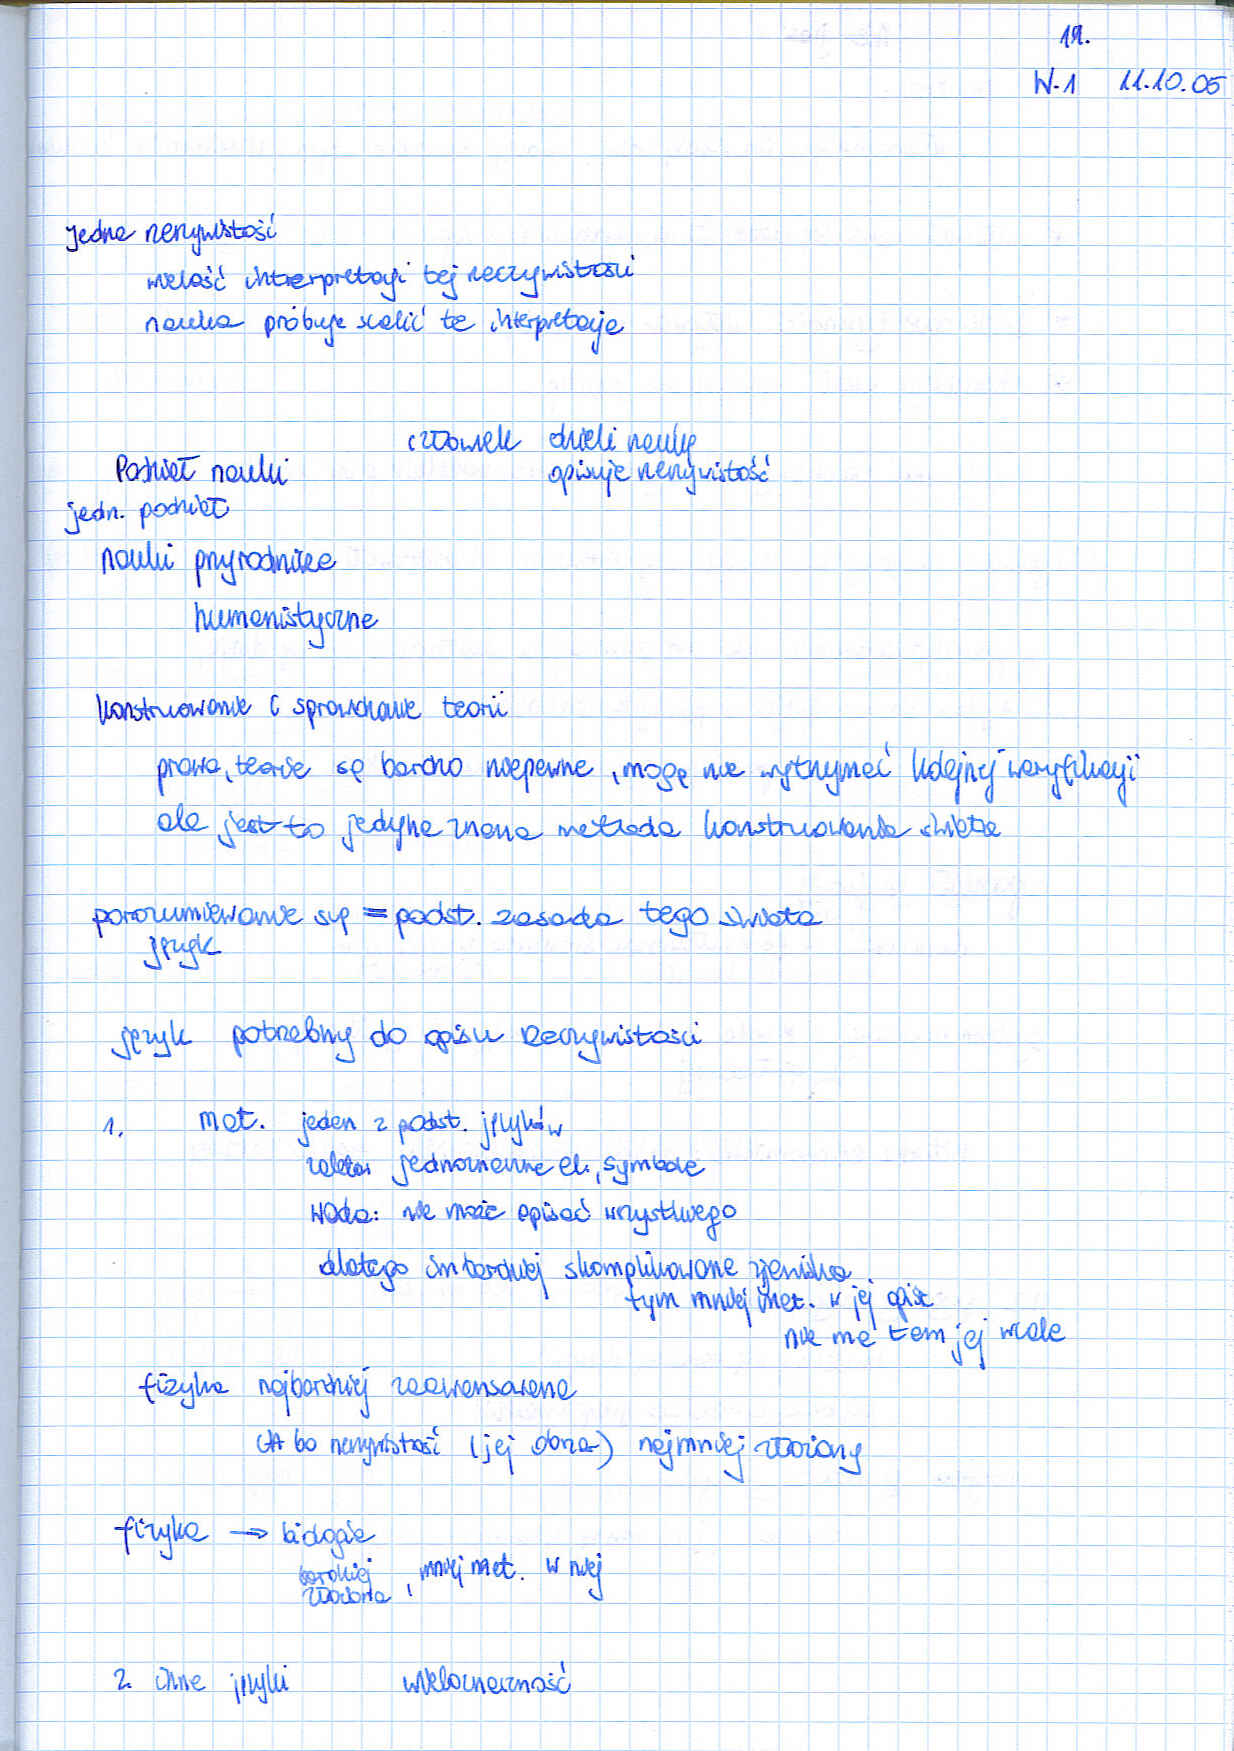 19.
W.1 11.10.05
jedna rzeczywistość
wielość interpretacji tej rzeczywistości
nauka próbuje scalić te interpretacje
człowiek dzieli naukę
Podział nauki opisuje rzeczywistość
jedn. podział
nauki przyrodnicze
humanistyczne
konstruowanie i sprawdzanie teorii
prawa, teorie są bardzo niepewne, mogą nie wytrzymać kolejnej weryfikacji
ale jest to jedyna znana metoda konstruowania świata
porozumiewanie się = podst. zasada tego świata
język
język potrzebny do opisu rzeczywistości
1. mat. jeden z podst. języków
zaleta: jednoznaczne el., symbole
wada: nie może opisać wszystkiego
dlatego im bardziej skomplikowane zjawiska
tym mniej mat. w jej opisie
nie ma tam jej wiele
fizyka najbardziej zaawansowana
bo rzeczywistość (jej obraz) najmniej złożony
fizyka → biologia
bardziej , mniej mat. w niej
złożona
2. inne języki wieloznaczność